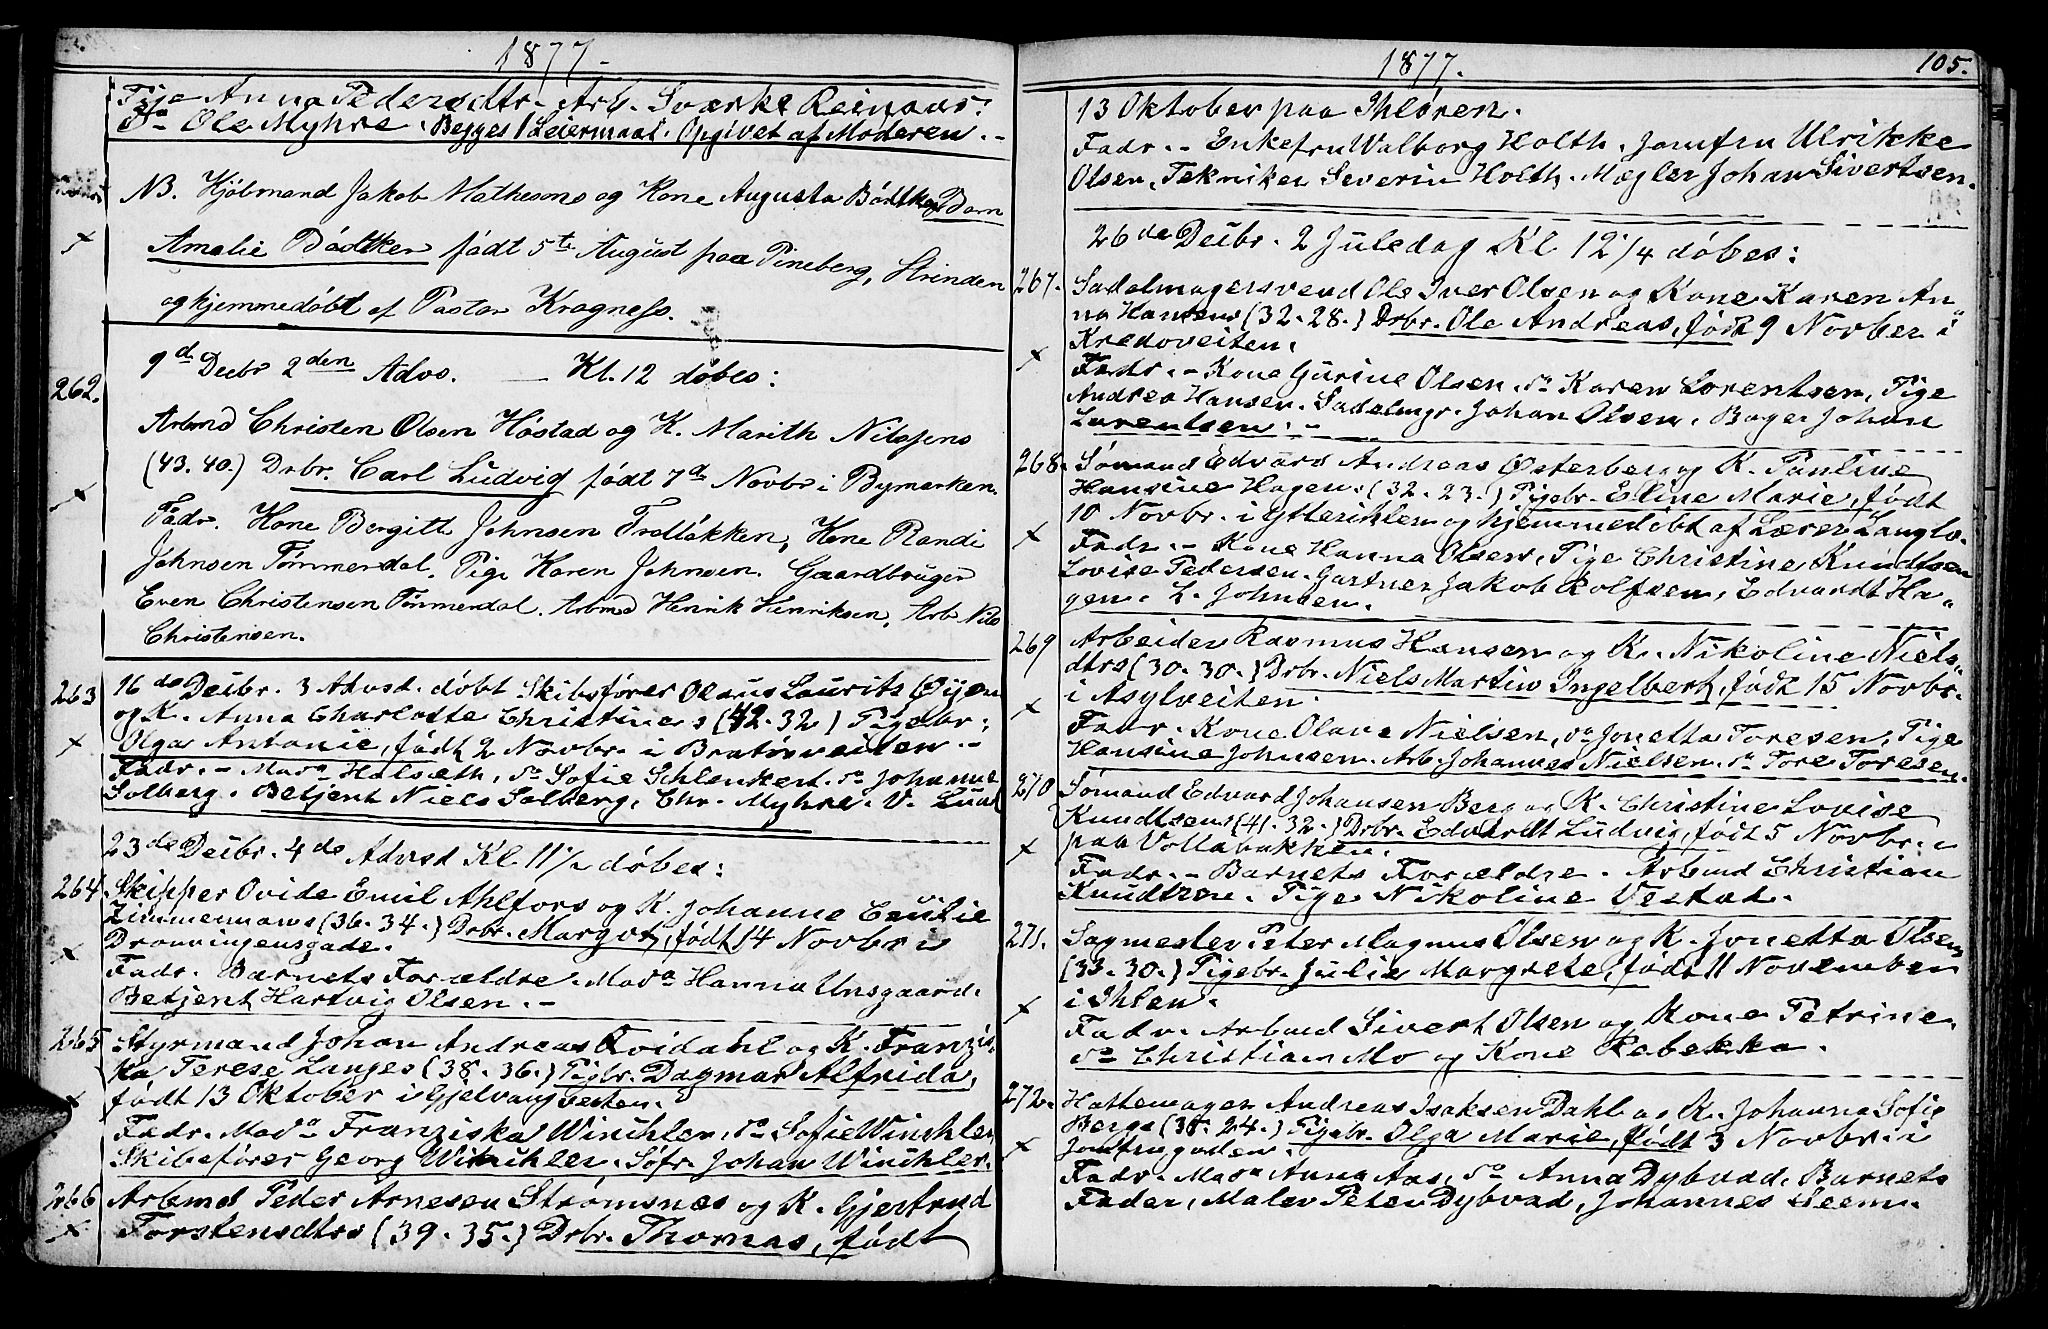 1877.
Pige Anna Pedersdtr. Arb. Sværke Reinaas.
do Ole Myhre. Begges 1 Leiermaal. Opgivet af Moderen.
NB. Kjøbmand Jakob Mathesons og Kone Augusta Bødtkers Barn
Amalie Bödtker født 5te August paa Pineberg, Strinden
og hjemmedøbt af Pastor Kragness.
9d Decbr 2den Advs. — Kl. 12 døbes:
262. Arbmd Christen Olsen Høstad og K. Marith Nilssens
(43. 40.) Drbr. Carl Ludvig født 7d Novbr i Bymarken.
Fadr. Kone Bergitt Johnsen Trolløkken, Kone Randi
Johnsen Tømmerdal, Pige Karen Johnsen. Gaardbruger
Even Christensen Tømmerdal. Arbmd Henrik Henriksen, Arb. Nils
Christensen.
263 16de Decbr. 3 Advsd. døbt Skibsfører Olaus Laurits Øyen
og K. Anna Charlotte Christines (42. 32) Pigebr.
Olga Antonie, født 2 Novbr. i Bratørveiten.
Fadr. - Mada Halseth, do Sofie Schlenkert. do Johanne
Solberg. Betjent Niels Solberg, Chr. Myhre. V. Lund
23de Decbr. 4de Advsd Kl 11½ døbes:
264. Skipper Ovide Emil Ahlfors og K. Johanne Cecilie
Zimmermanns (36. 34.) Drbr. Margot, født 14 Novbr i
Dronningensgade.
Fadr. Barnets Forældre. Mada Hanna Unsgaard.
Betjent Hartvig Olsen. -
265 Styrmand Johan Andreas Qvidahl og K. Franzis,
ka Terese Langes (38. 36.) Pigbr. Dagmar Alfrida,
født 13 Oktober i Gjelvangveiten.
Fadr. Mada Franziska Winchler, do Sofie Winchler,
Skibsfører Georg Winchler. Søfr. Johan Winchler.
266 Arbmd Peder Arnesen Strømsnes og K. Gjertrud
Torstensdtrs (39. 35.) Drbr. Thomas, født
1877. 105.
13 Oktober paa Ihløren.
Fadr. - Enkefru Walborg Holth. Jomfru Ulrikke
Olsen, Tekniker Severin Holth. Mægler Johan Sivertsen.
26de Decbr. 2 Juledag Kl 12¼ døbes:
267. Sadelmagersvend Ole Iver Olsen og Kone Karen An„
na Hansens (32. 28.) Drbr. Ole Andreas, født 9 Novber i
Kredoveiten.
Fadr. - Kone Gurine Olsen, do Karen Lorentsen, Pige
Andrea Hansen. Sadelmgr. Johan Olsen, Bager Johan
Lorentsen. -
268. Sømand Edvard Andreas Østerberg og K. Pauline
Hansine Hagen. (32. 23.) Pigebr. Eline Marie, født
10 Novbr. i Ytterihlen og hjemmedøbt af Lærer Langlo.
Fadr. - Kone Hanna Olsen, Pige Christine Knudtsen
Lovise Pedersen. Gartner Jakob Rolfsen, Edvardt Ha„
gen. L. Johnsen.
269 Arbeider Rasmus Hansen og K. Nikoline Niels„
dtrs (30. 30.) Drbr. Niels Martin Ingelbert, født 15 Novbr.
i Asylveiten.
Fadr. Kone Olava Nielsen, do Jonetta Foresen, Pige
Hansine Johnsen. Arb. Johannes Nielsen. do Tore Foresen.
270 Sømand Edvard Johansen Berg og K. Christine Lovise
Knudtsens (41. 32.) Drbr. Edvardt Ludvig, født 5 Novbr. i
paa Vollabakken.
Fadr. - Barnets Forældre. Arbmd Christian
Knudtzen. Pige Nikoline Vestad.
271. Sagmester Peter Magnus Olsen og K. Jonetta Olsens
(33. 30.) Pigebr. Julie Margrete, født 11 November
i Ihlen.
Fadr. Arbmd Sivert Olsen og Kone Petrine.
do Christian Mo og Kone Rebekka.
272. Hattemager Andreas Isaksen Dahl og K. Johanna Sofie
Bergs (38. 24.) Pigebr. Olga Marie, født 3 Novbr. i
Jomfrugaden.
Fadr. Mada Anna Aas, do Anna Dybvad. Barnets
Fader, Maler Peter Dybvad, Johannes Heem.